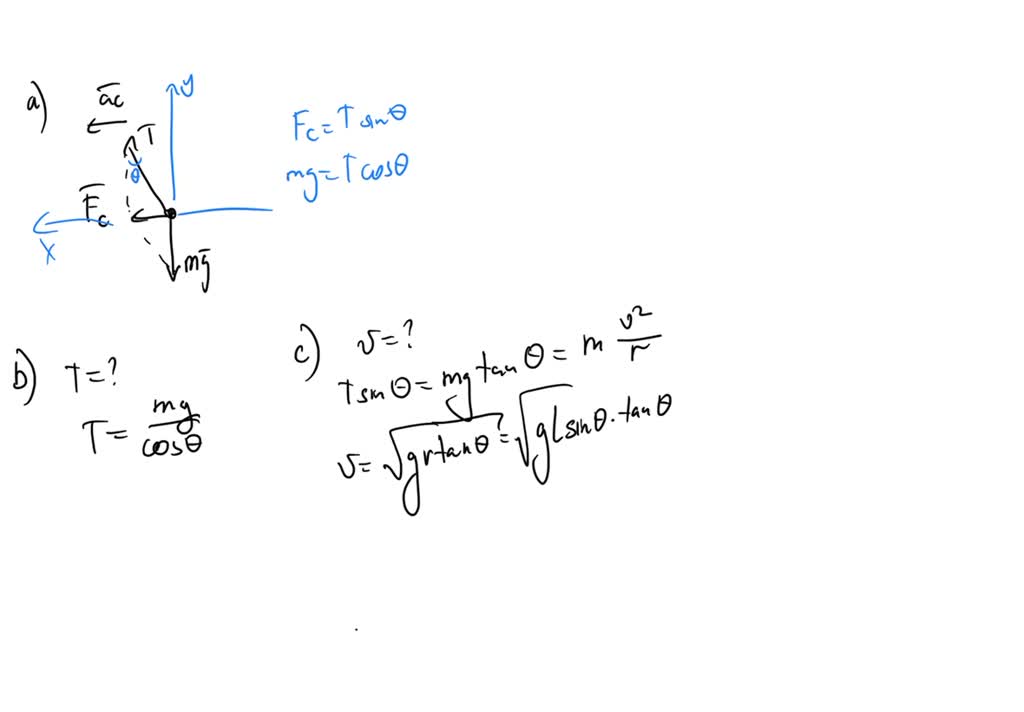 a)
a̅c
y
T̅
θ
F̅c
x
mg̅
Fc = T sinθ
mg = T cosθ
b) T = ?
T = mg/cosθ
c) v = ?
T sinθ = mg tanθ = m v²/r
v = √(g r tanθ) = √(gL sinθ · tanθ)